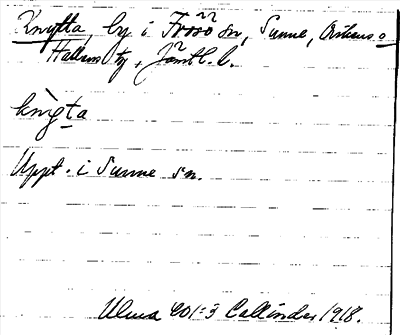 Knytta, by i Frösö sn, Sunne, Oviken o
Hallens tg, Jämtl. l.
knỳta
Uppt. i Sunne sn.
Ulma 201:3 Callinder 1918.